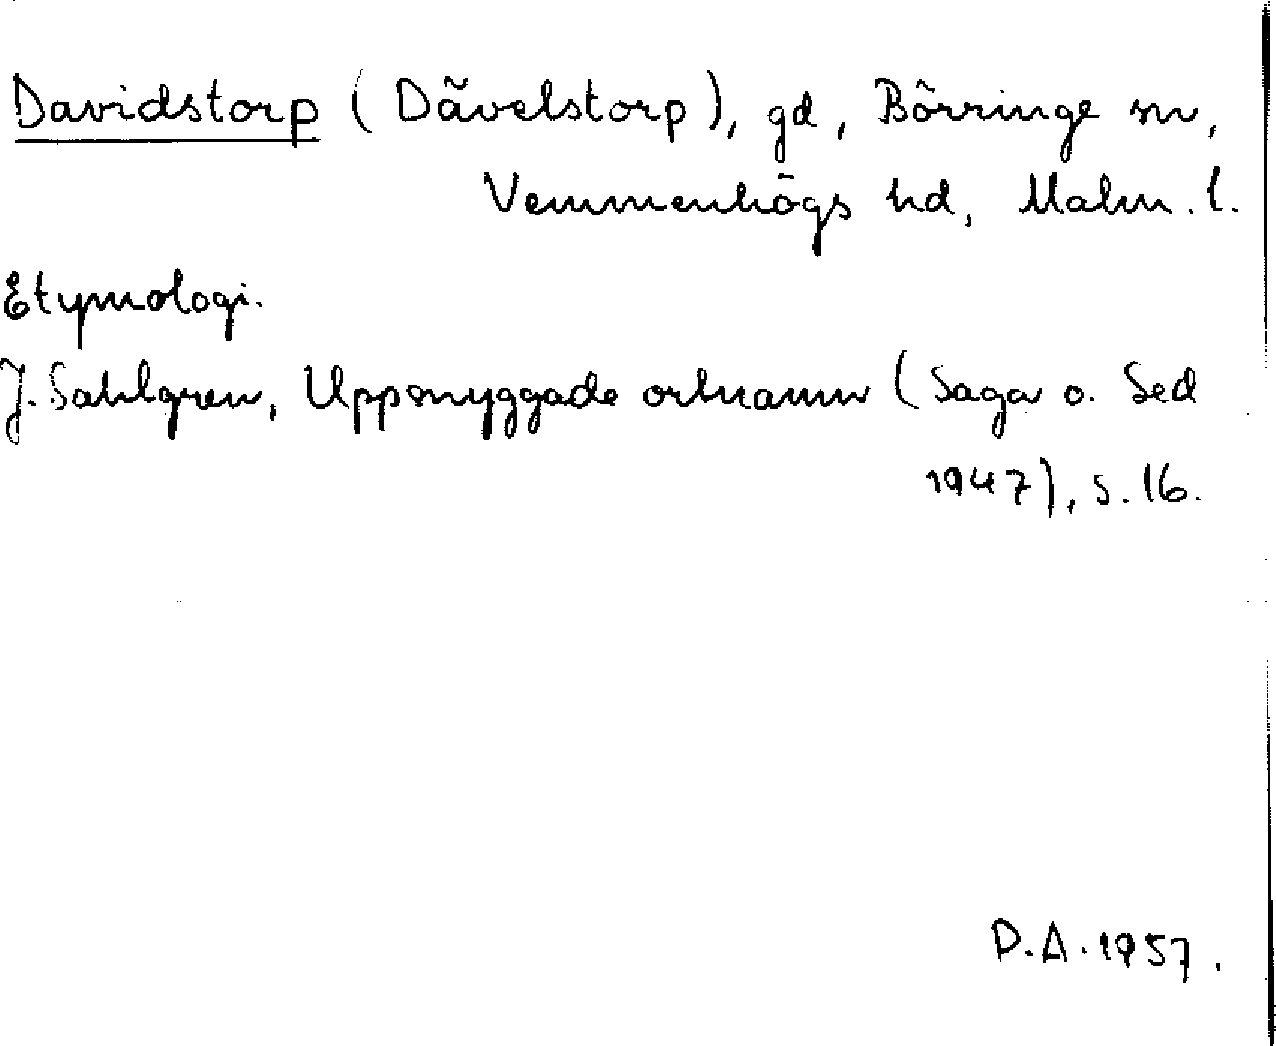 Davidstorp (Dävelstorp), gd, Börringe sn,
Vemmenhögs hd, Malm. l.
Etymologi.
J. Sahlgren, Uppsnyggade ortnamn (Saga o. Sed
1947), s. 16.
D.A. 1957.